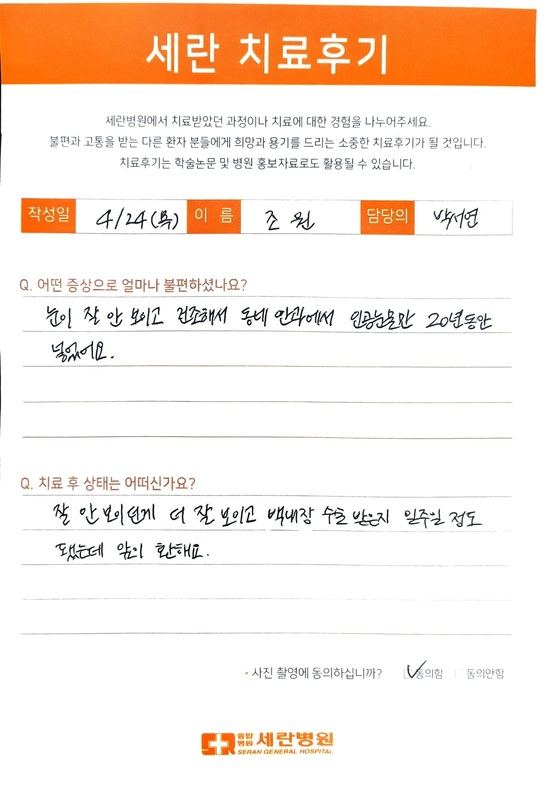 세란 치료후기
세란병원에서 치료받았던 과정이나 치료에 대한 경험을 나누어주세요.
불편과 고통을 받는 다른 환자 분들에게 희망과 용기를 드리는 소중한 치료후기가 될 것입니다.
치료후기는 학술논문 및 병원 홍보자료로도 활용될 수 있습니다.
작성일 4/24(목) 이 름 조 원 담당의 박서연
Q. 어떤 증상으로 얼마나 불편하셨나요?
눈이 잘 안 보이고 건조해서 동네 안과에서 인공눈물만 20년동안
넣었어요.
Q. 치료 후 상태는 어떠신가요?
잘 안 보이던게 더 잘 보이고 백내장 수술 받은지 일주일 정도
됐는데 앞이 환해요.
· 사진 촬영에 동의하십니까? 동의함 동의안함
종합병원 세란병원
SERAN GENERAL HOSPITAL